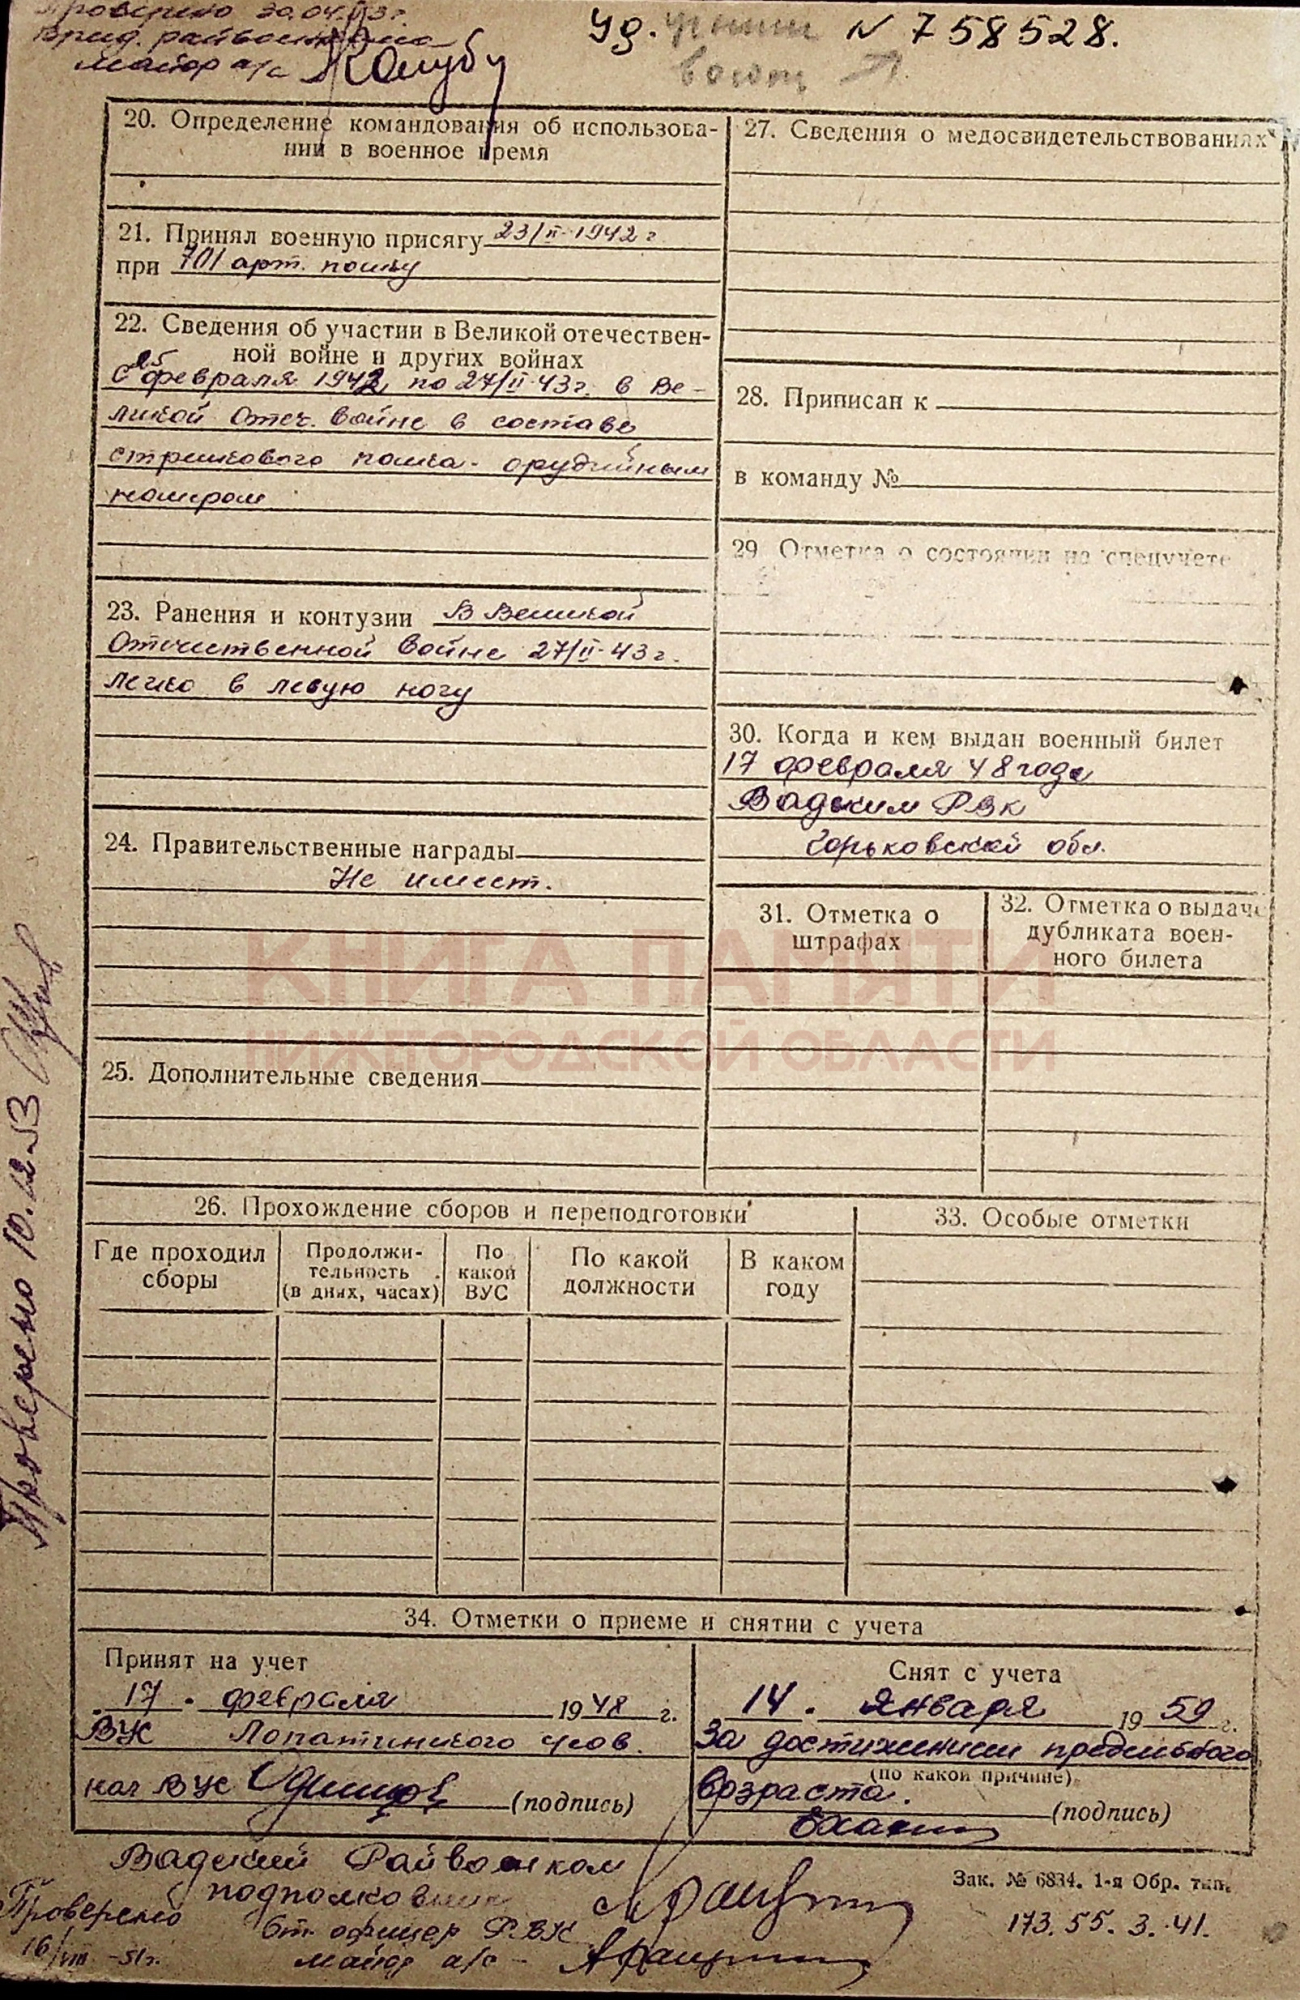 Проверено 30.04.53г.
майор а/с
Уд. N 758528.
20. Определение командования об использова-
нии в военное время
21. Принял военную присягу 23/II-1942 г
при 701 арт. полку
22. Сведения об участии в Великой отечествен-
ной войне и других войнах
С 25 февраля 1942 по 27/II-43г. в Ве-
ликой Отеч. войне в составе
стрелкового полка - орудийным
номером
23. Ранения и контузии В Великой
Отечественной Войне 27/II-43г.
легко в левую ногу
24. Правительственные награды
Не имеет.
25. Дополнительные сведения
27. Сведения о медосвидетельствованиях
28. Приписан к
в команду №
29 Отметка о состоянии на спецучете
30. Когда и кем выдан военный билет
17 февраля 48 года
Вадским РВК
Горьковской обл.
31. Отметка о
штрафах
32. Отметка о выдаче
дубликата воен-
ного билета
КНИГА ПАМЯТИ
НИЖЕГОРОДСКОЙ ОБЛАСТИ
26. Прохождение сборов и переподготовки
Где проходил
сборы
Продолжи-
тельность
(в днях, часах)
По
какой
ВУС
По какой
должности
В каком
году
33. Особые отметки
34. Отметки о приеме и снятии с учета
Принят на учет
17. февраля 1948 г.
ВУС Лопатинского
нач ВУС (подпись)
Снят с учета
14. января 1959 г.
За достижением предельного
(по какой причине)
возраста.
(подпись)
Вадский Райвоенком
подполковник
Проверено
16/VIII-51г.
Ст. офицер РВК
майор а/с
Зак. № 6834. 1-я Обр. тип.
173. 55. 3. 41.
Проверено 10.12.53